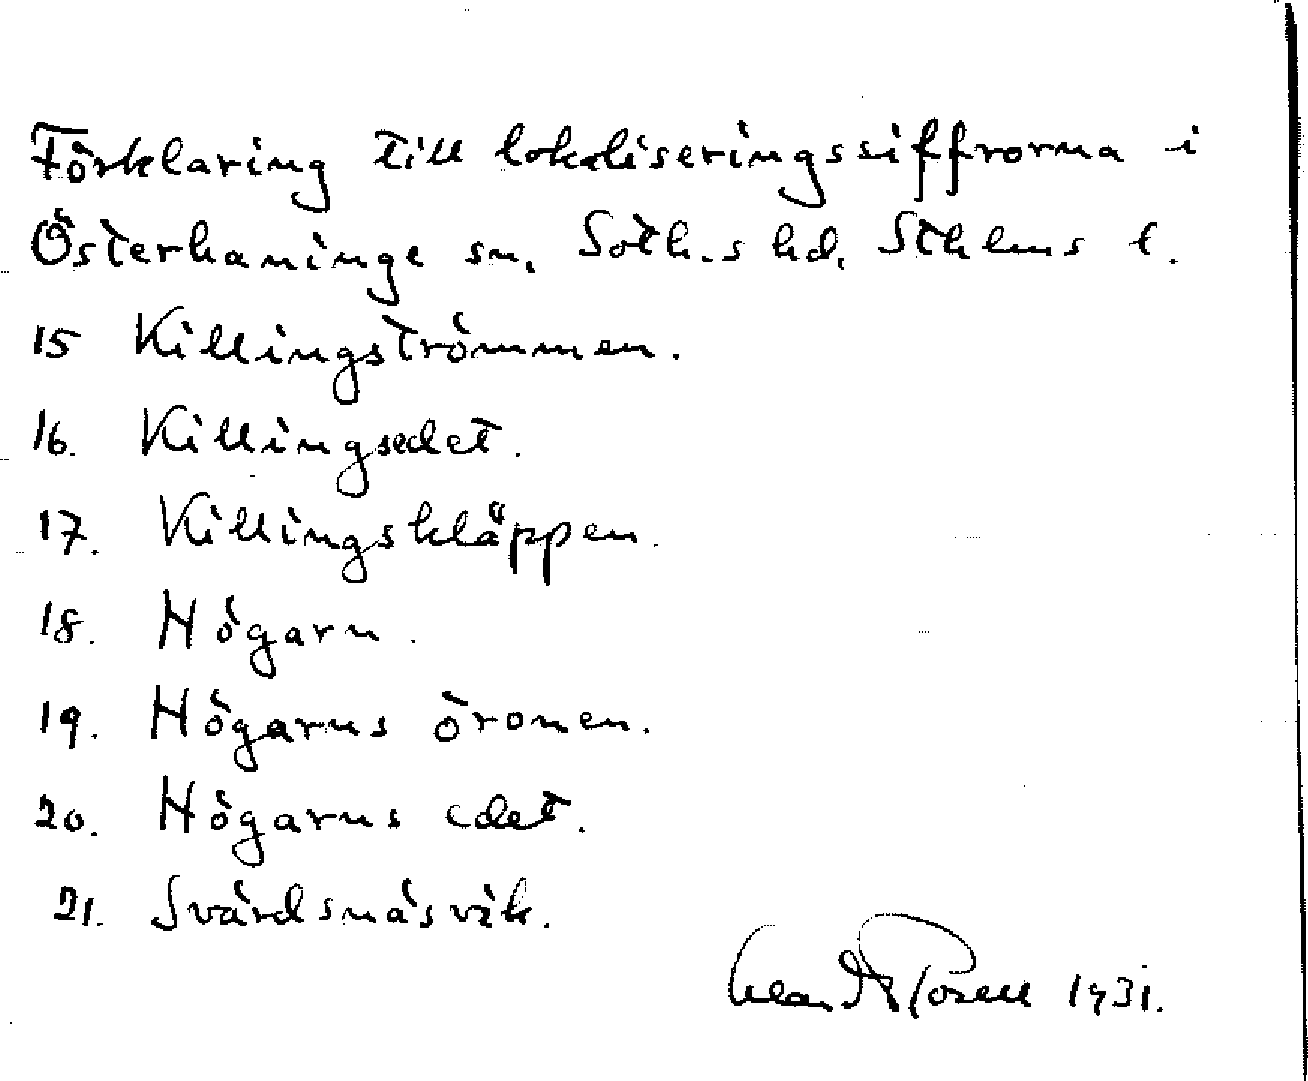 Förklaring till lokaliseringssiffrorna i
Österhaninge sn. Soth.s hd. Sthlms l.
15 Killingströmmen.
16. Killingsedet.
17. Killingskläppen.
18. Högarn.
19. Högarns öronen.
20. Högarns edet.
21. Svärdsnäsvik.
1931.